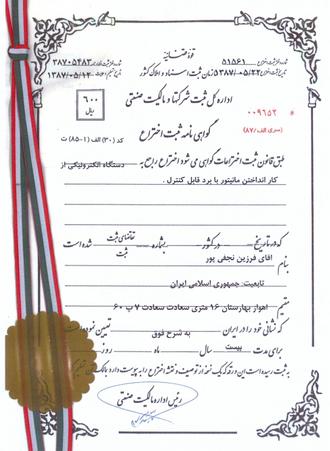 قوهٔ قضائیه
شماره ثبت اختراع ۵۱۵۶۱
شماره ثبت اظهارنامه ۳۸۷۰۵۴۸۳
تاریخ ثبت اختراع ۱۳۸۷/۰۵/۲۲
سازمان ثبت اسناد و املاک کشور
۱۳۸۷/۰۵/۱۲
اداره کل ثبت شرکتها و مالکیت صنعتی
۶۰۰
ریال
۰۰۹۶۵۲
(سری الف/۸۷)
گواهی نامه ثبت اختراع
کد (۳۰) الف (۱-۸۵) ت
طبق قانون ثبت اختراعات گواهی می شود اختراع راجع به دستگاه الکترونیکی از
کار انداختن مانیتور با برد قابل کنترل .
که در تاریخ در کشور بشماره تقاضای ثبت شده است
ثبت
بنام آقای فرزین نجفی پور
تابعیت: جمهوری اسلامی ایران
مقیم اهواز بهارستان ۱۶ متری سعادت سعادت ۷ پ ۶۰
که نشانی خود را در ایران به شرح فوق تعیین نموده است
برای مدت بیست سال ماه روز
به ثبت رسیده است این ورقه که یک نسخه از توصیف و نقشه اختراع را به پیوست دارد
رئیس اداره مالکیت صنعتی